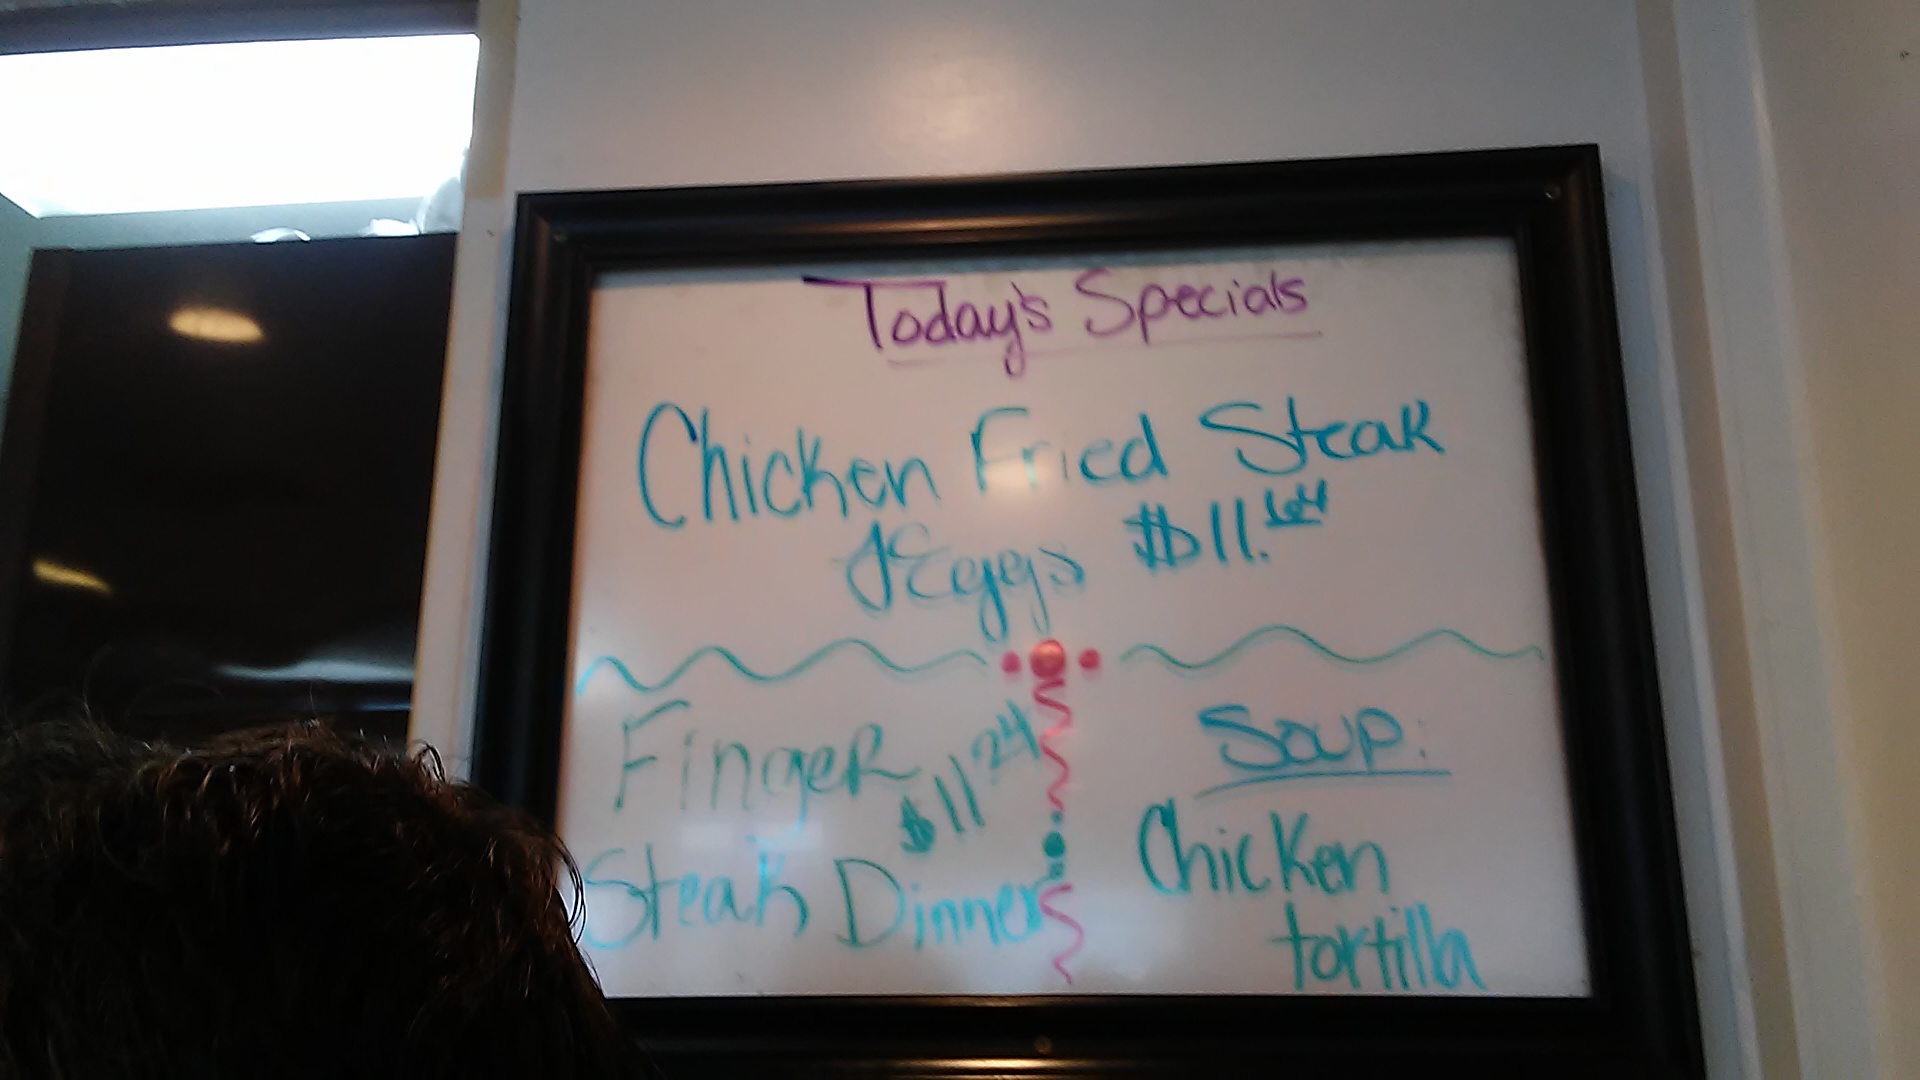 Today's Specials
Chicken Fried Steak
& Eggs $11.64
Finger
$11 24
Steak Dinner
Soup:
Chicken
tortilla